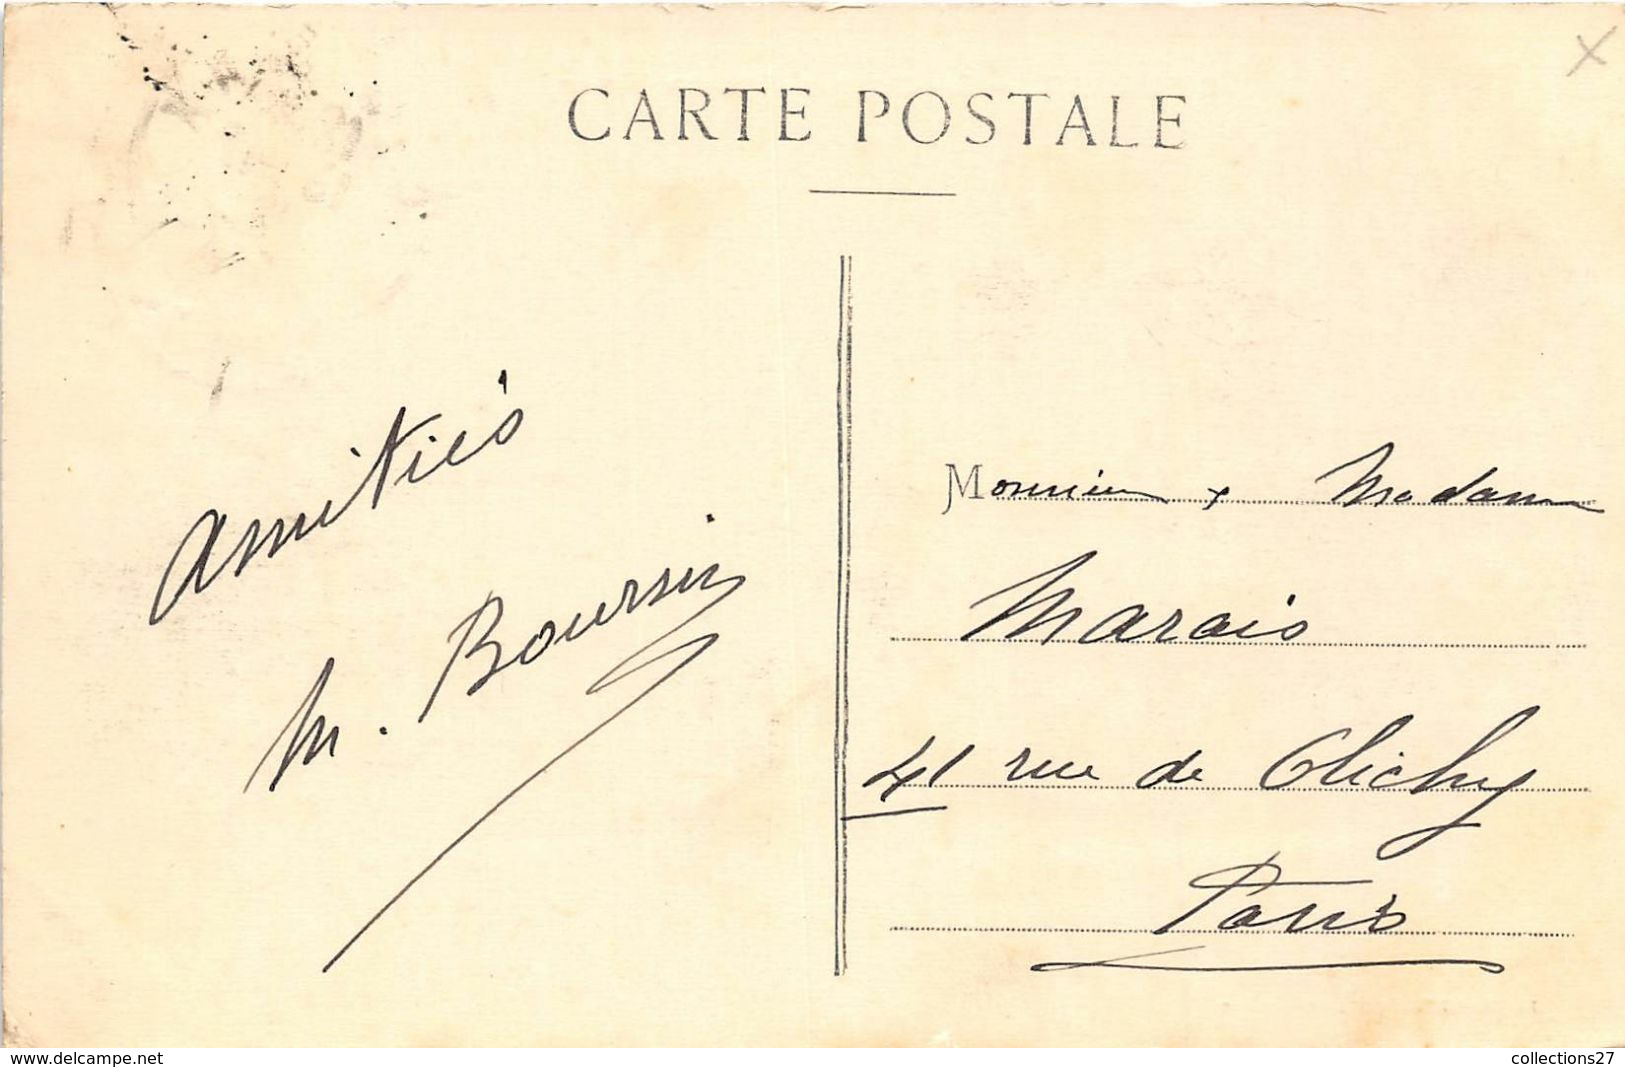 CARTE POSTALE
Amitiés
M. Boursin
Monsieur + Madame
Marais
41 rue de Clichy
Paris
www.delcampe.net
collections27